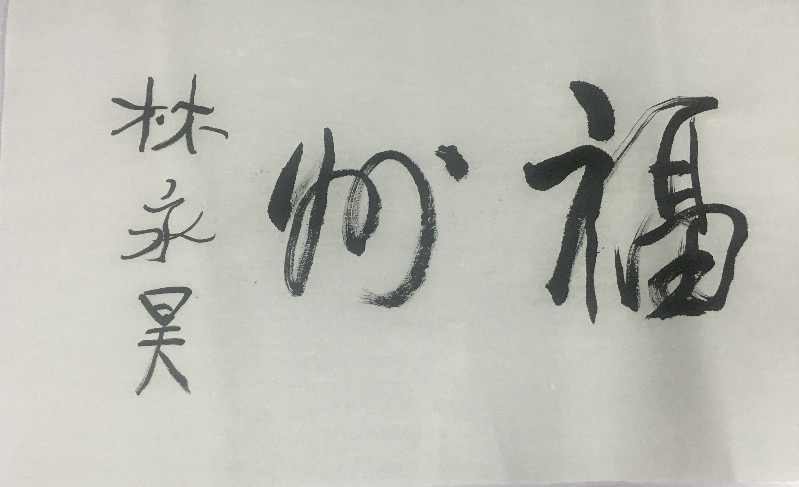 福州
林永昊